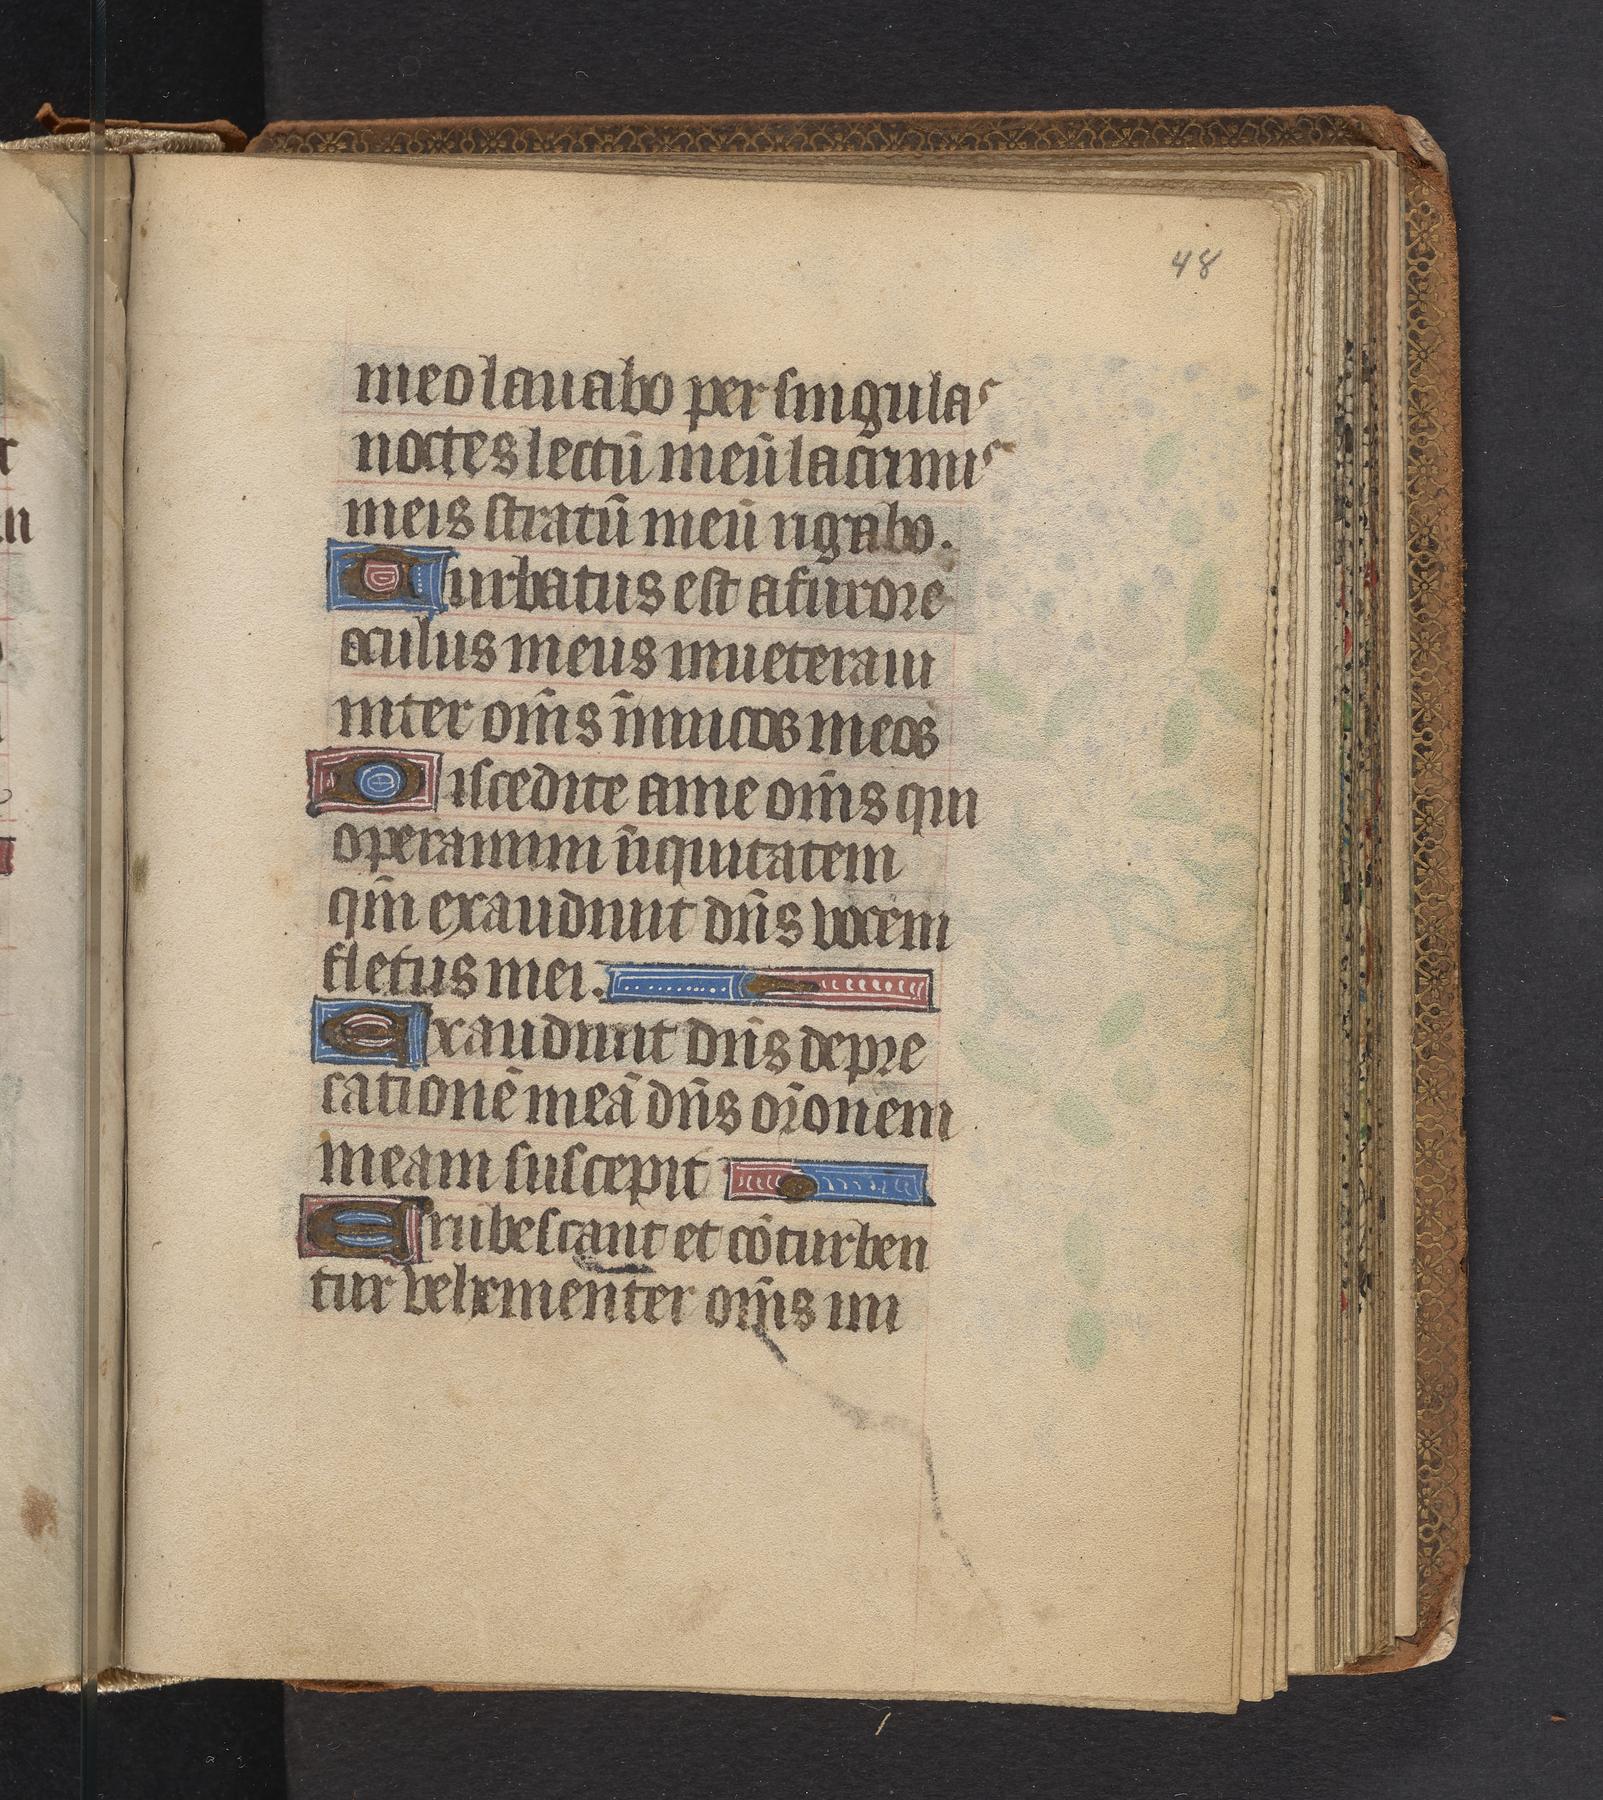 48
meo lauabo per singulas
noctes lectū meū lacrimis
meis stratū meū rigabo.
Turbatus est a furore
oculus meus inueteraui
inter om̄s īnimicos meos
Discedite a me om̄s qui
operamini īiquitatem
qm̄ exaudiuit dn̄s vocem
fletus mei.
Exaudiuit dn̄s depre
cationē meā dn̄s or̄onem
meam suscepit
Erubescant et cōturben
tur vehementer om̄s ini